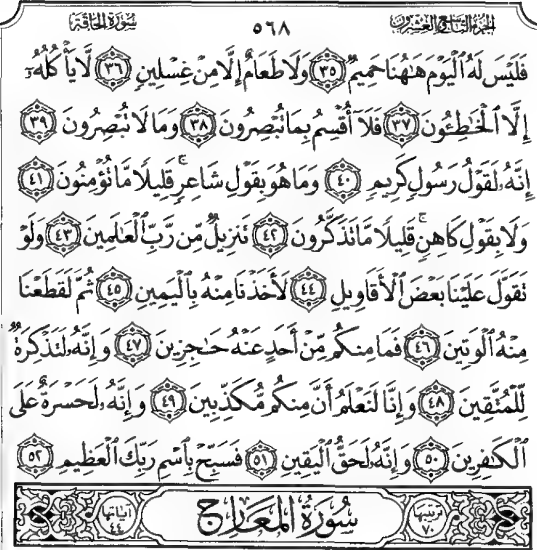 الجزء التاسع والعشرون ٥٦٨ سورة الحاقة
فَلَيْسَ لَهُ ٱلْيَوْمَ هَٰهُنَا حَمِيمٌ ٣٥ وَلَا طَعَامٌ إِلَّا مِنْ غِسْلِينٍ ٣٦ لَّا يَأْكُلُهُۥٓ
إِلَّا ٱلْخَٰطِـُٔونَ ٣٧ فَلَآ أُقْسِمُ بِمَا تُبْصِرُونَ ٣٨ وَمَا لَا تُبْصِرُونَ ٣٩
إِنَّهُۥ لَقَوْلُ رَسُولٍ كَرِيمٍ ٤٠ وَمَا هُوَ بِقَوْلِ شَاعِرٍ ۚ قَلِيلًا مَّا تُؤْمِنُونَ ٤١
وَلَا بِقَوْلِ كَاهِنٍ ۚ قَلِيلًا مَّا تَذَكَّرُونَ ٤٢ تَنزِيلٌ مِّن رَّبِّ ٱلْعَٰلَمِينَ ٤٣ وَلَوْ
تَقَوَّلَ عَلَيْنَا بَعْضَ ٱلْأَقَاوِيلِ ٤٤ لَأَخَذْنَا مِنْهُ بِٱلْيَمِينِ ٤٥ ثُمَّ لَقَطَعْنَا
مِنْهُ ٱلْوَتِينَ ٤٦ فَمَا مِنكُم مِّنْ أَحَدٍ عَنْهُ حَٰجِزِينَ ٤٧ وَإِنَّهُۥ لَتَذْكِرَةٌ
لِّلْمُتَّقِينَ ٤٨ وَإِنَّا لَنَعْلَمُ أَنَّ مِنكُم مُّكَذِّبِينَ ٤٩ وَإِنَّهُۥ لَحَسْرَةٌ عَلَى
ٱلْكَٰفِرِينَ ٥٠ وَإِنَّهُۥ لَحَقُّ ٱلْيَقِينِ ٥١ فَسَبِّحْ بِٱسْمِ رَبِّكَ ٱلْعَظِيمِ ٥٢
ترتيبها ٧٠ سُورَةُ المَعَارِج آياتها ٤٤